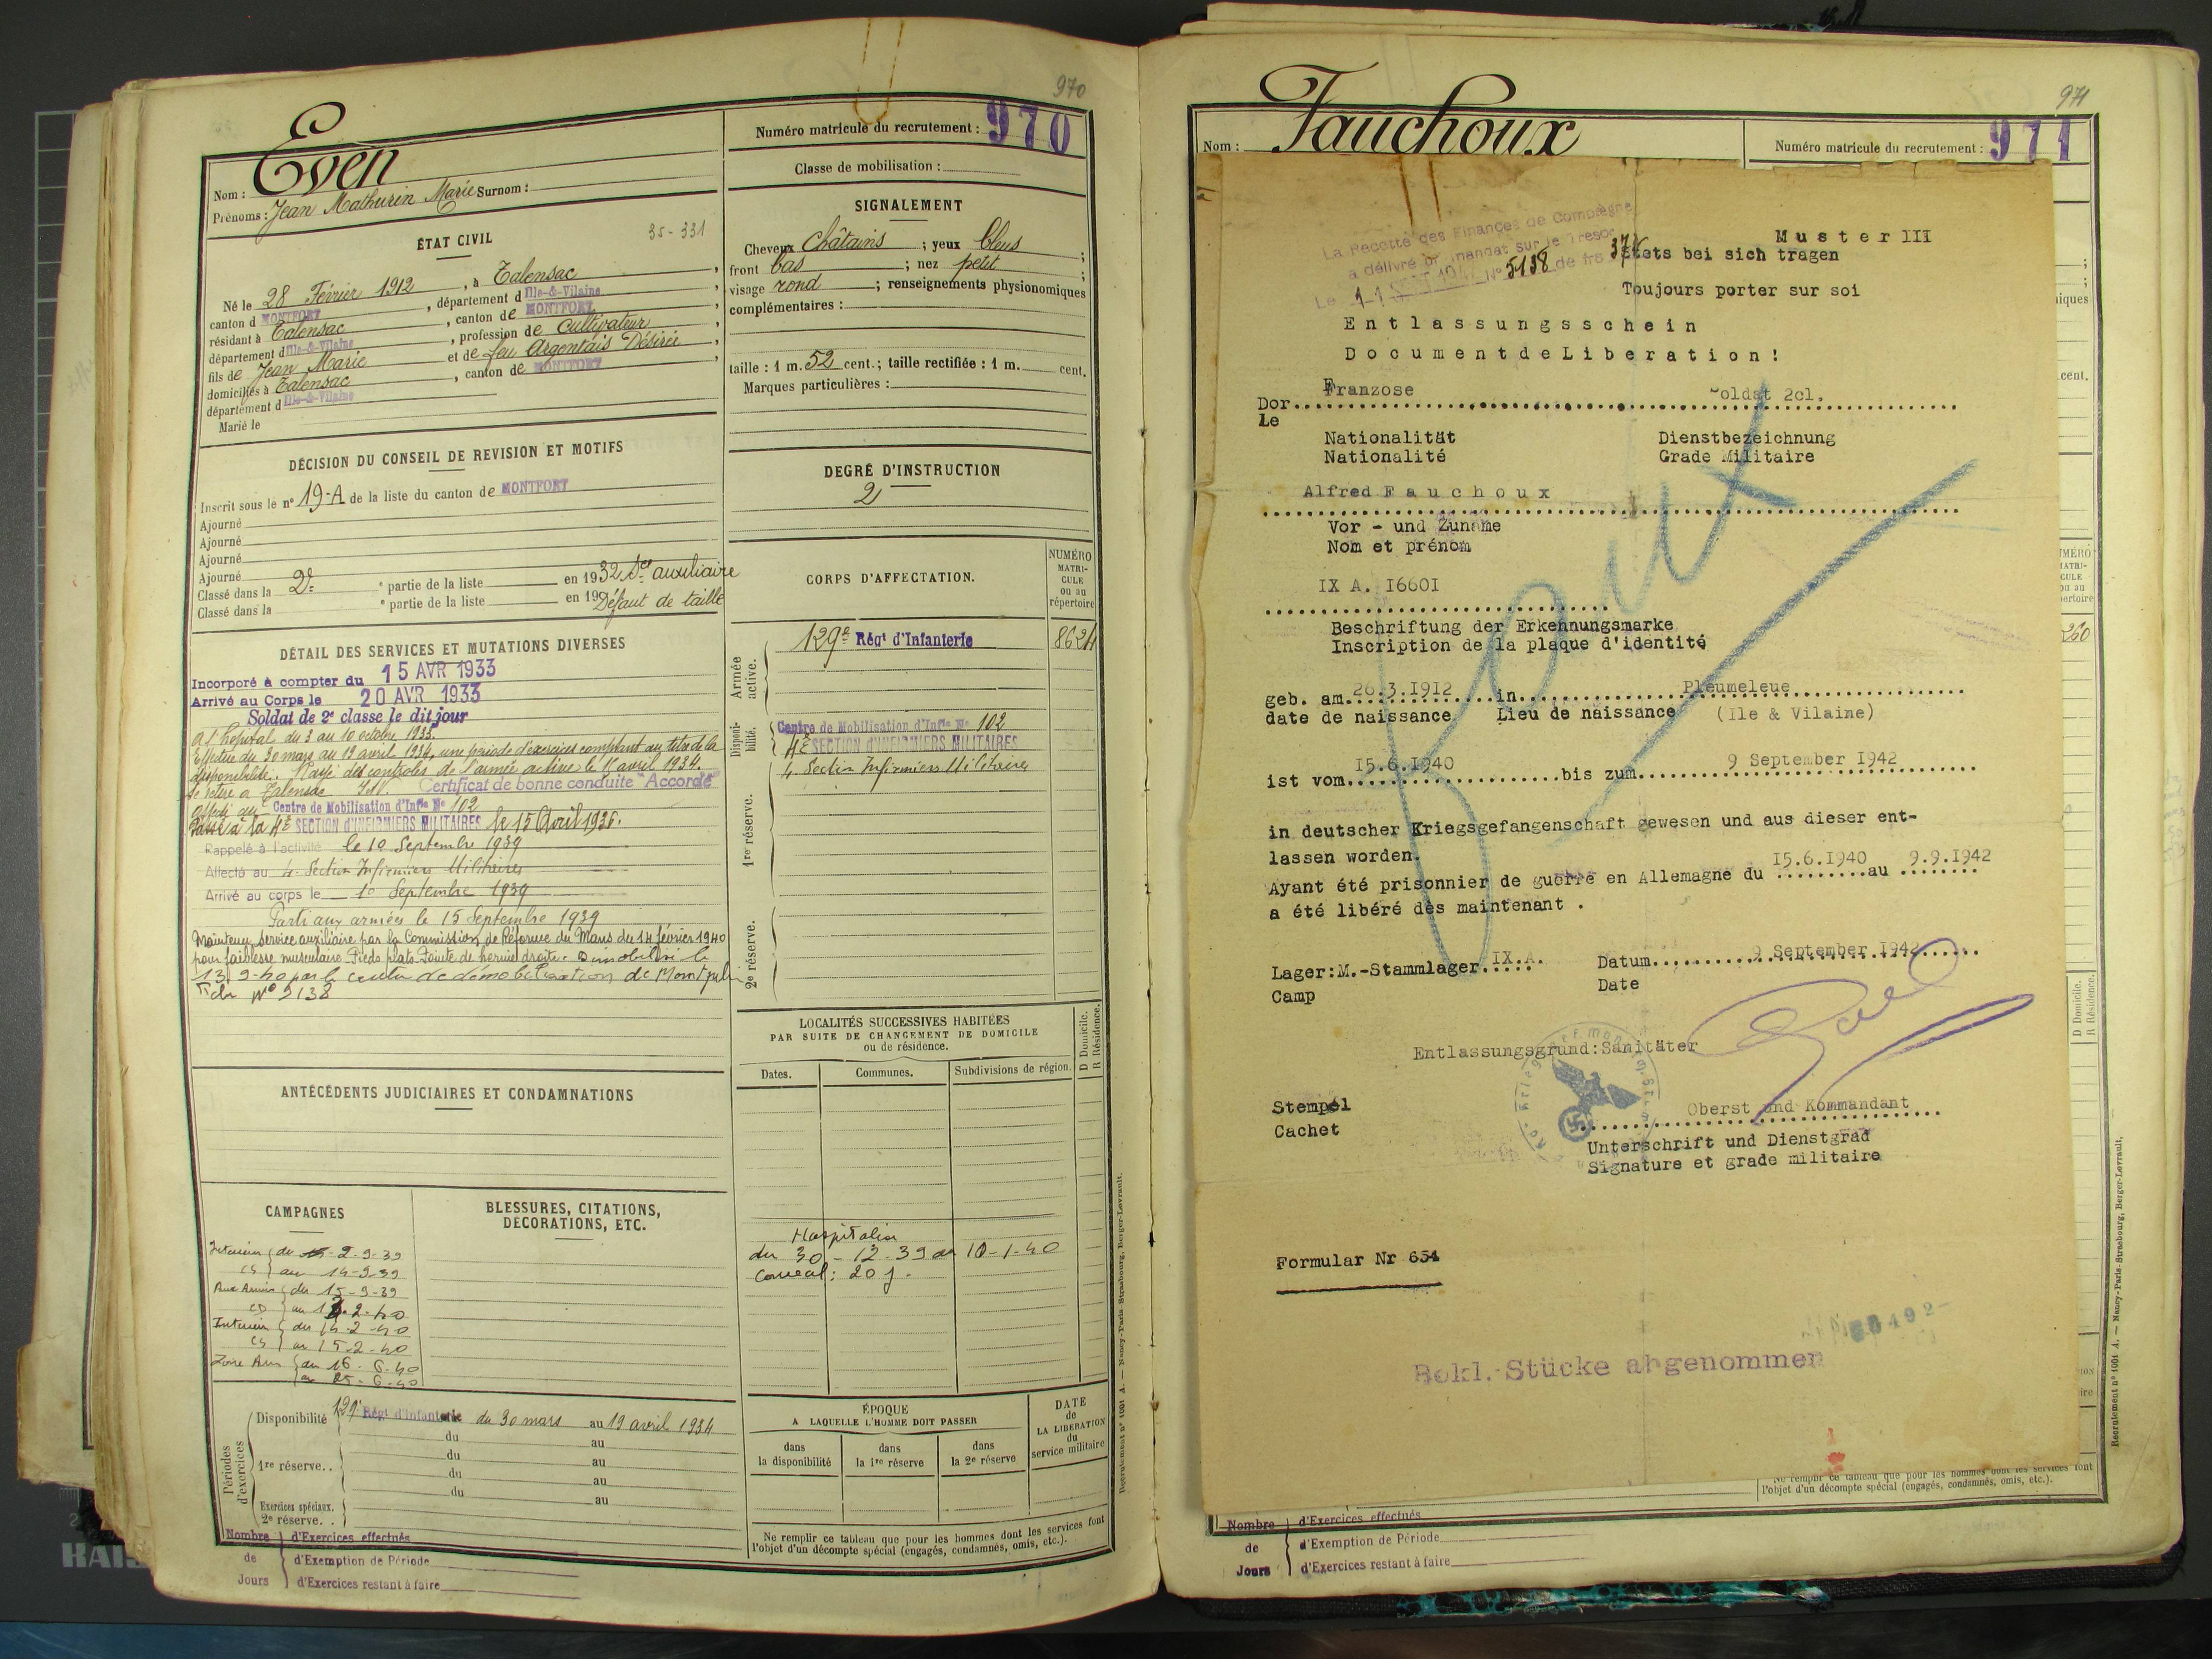 970
Even
Nom :
Prénoms : Jean Mathurin Marie Surnom :
Numéro matricule du recrutement : 970
Classe de mobilisation :
ÉTAT CIVIL
35-331
Né le 28 Février 1912, à Talensac,
canton d MONTFORT, département d Ille-&-Vilaine,
résidant à Talensac, canton de MONTFORT,
département d Ille-&-Vilaine, profession de cultivateur,
fils de Jean Marie et de feu Argentais Désirée,
domiciliés à Talensac, canton de MONTFORT,
département d Ille-&-Vilaine
Marié le
DÉCISION DU CONSEIL DE REVISION ET MOTIFS
Inscrit sous le n° 19-A de la liste du canton de MONTFORT
Ajourné
Ajourné
Ajourné
Ajourné
Classé dans la 2e ° partie de la liste en 1932 Sce auxiliaire
Classé dans la ° partie de la liste en 19 Défaut de taille
DÉTAIL DES SERVICES ET MUTATIONS DIVERSES
Incorporé à compter du 15 AVR 1933
Arrivé au Corps le 20 AVR 1933
Soldat de 2e classe le dit jour
A l'hôpital du 3 au 10 octobre 1933.
Effectue du 30 mars au 19 avril 1934, une période d'exercices comptant au titre de la
disponibilité. Rayé des contrôles de l'armée active le 1er avril 1934.
Se retire à Talensac Certificat de bonne conduite "Accordé"
Affecté au Centre de Mobilisation d'Infie No 102
Passé à la 4e SECTION d'INFIRMIERS MILITAIRES le 15 Avril 1936.
Rappelé à l'activité le 10 Septembre 1939
Affecté au 4e Section Infirmiers Militaires
Arrivé au corps le 10 Septembre 1939
Parti aux armées le 15 Septembre 1939
Maintenu service auxiliaire par la Commission de Réforme du Mans du 14 février 1940
pour faiblesse musculaire. Pieds plats. Pointe de hernie droite. Démobilisé le
13.9-40 par le centre de démobilisation de
No 9138
ANTÉCÉDENTS JUDICIAIRES ET CONDAMNATIONS
CAMPAGNES
Intérieur du 2-9-39
CS au 14-9-39
Aux Armées du 15-9-39
CD au 13-2-40
Intérieur du 14-2-40
CS au 15-2-40
Zone Arm du 16-6-40
au 25-6-40
BLESSURES, CITATIONS,
DÉCORATIONS, ETC.
Périodes d'exercices
Disponibilité 129e Régt d'Infanterie du 30 mars au 19 avril 1934
du au
1re réserve.. du au
du au
du au
Exercices spéciaux.
2e réserve. .
Nombre d'Exercices effectués
de d'Exemption de Période
Jours d'Exercices restant à faire
SIGNALEMENT
Cheveux châtains ; yeux bleus ;
front bas ; nez petit ;
visage rond ; renseignements physionomiques
complémentaires :
taille : 1 m. 52 cent.; taille rectifiée : 1 m. cent.
Marques particulières :
DEGRÉ D'INSTRUCTION
2
CORPS D'AFFECTATION.
NUMÉRO
MATRI-
CULE
ou au
répertoire
Armée active.
129e Régt d'Infanterie 8624
Disponi-
bilité.
Centre de Mobilisation d'Infie No 102
4e SECTION d'INFIRMIERS MILITAIRES
4e Section Infirmiers Militaires
1re réserve.
2e réserve.
LOCALITÉS SUCCESSIVES HABITÉES
PAR SUITE DE CHANGEMENT DE DOMICILE
ou de résidence.
D Domicile.
R Résidence.
Dates.
Communes.
Subdivisions de région.
du 30-12-39 au 10-1-40
20 j.
ÉPOQUE
A LAQUELLE L'HOMME DOIT PASSER
dans la disponibilité
dans la 1re réserve
dans la 2e réserve
DATE
de
LA LIBÉRATION
du
service militaire
Ne remplir ce tableau que pour les hommes dont les services font
l'objet d'un décompte spécial (engagés, condamnés, omis, etc.).
Recrutement n° 1001 A. — Nancy-Paris-Strasbourg, Berger-Levrault.
971
Nom : Fauchoux
Numéro matricule du recrutement : 971
La Recette des Finances de Compiègne
a délivré un mandat sur le Trésor
N° 5138 de frs
Muster III
Stets bei sich tragen
Toujours porter sur soi
Entlassungsschein
Document de Liberation!
Franzose oldat 2cl.
Der
Le
Nationalität Dienstbezeichnung
Nationalité Grade Militaire
Alfred Fauchoux
Vor - und Zuname
Nom et prénom
IX A. I6601
Beschriftung der Erkennungsmarke
Inscription de la plaque d'identité
geb. am 26.3.1912 in Pleumeleue
date de naissance Lieu de naissance (Ile & Vilaine)
ist vom 15.6.1940 bis zum 9 September 1942
in deutscher Kriegsgefangenschaft gewesen und aus dieser ent-
lassen worden.
Ayant été prisonnier de guerre en Allemagne du 15.6.1940 au 9.9.1942
a été libéré dès maintenant .
Lager:M.-Stammlager IX.A. Datum 9 September 1942
Camp Date
Entlassungsgrund:Sanitäter
Stempel Oberst und Kommandant
Cachet
Unterschrift und Dienstgrad
Signature et grade militaire
Formular Nr 654
Bekl.-Stücke abgenommen
Ne remplir ce tableau que pour les hommes dont les services font
l'objet d'un décompte spécial (engagés, condamnés, omis, etc.).
Nombre d'Exercices effectués
de d'Exemption de Période
Jours d'Exercices restant à faire
260
D Domicile.
R Résidence.
Recrutement n° 1001 A. — Nancy-Paris-Strasbourg, Berger-Levrault.